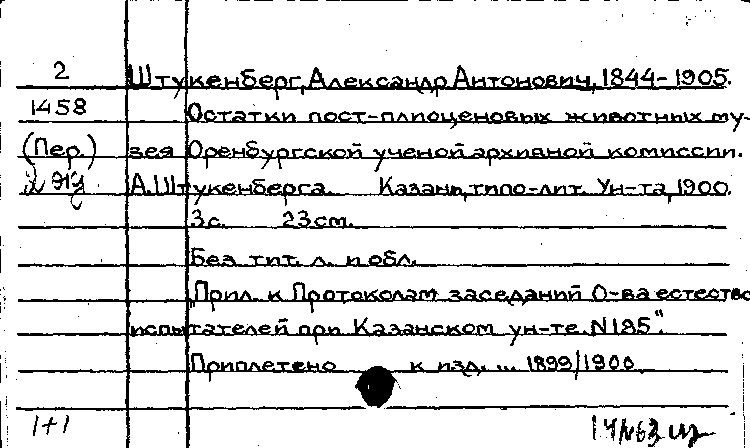 2 Штукенберг, Александр Антонович, 1844-1905.
1458 Остатки пост-плиоценовых животных му-
(Пер.) зея Оренбургской ученой архивной комиссии.
2 экз А. Штукенберга. Казань, типо-лит. Ун-та, 1900.
3 с. 23 см.
Без тит. л. и обл.
"Прил. к Протоколам заседаний О-ва естество
испытателей при Казанском ун-те. N 185".
Приплетено к изд. ... 1899/1900
1+1